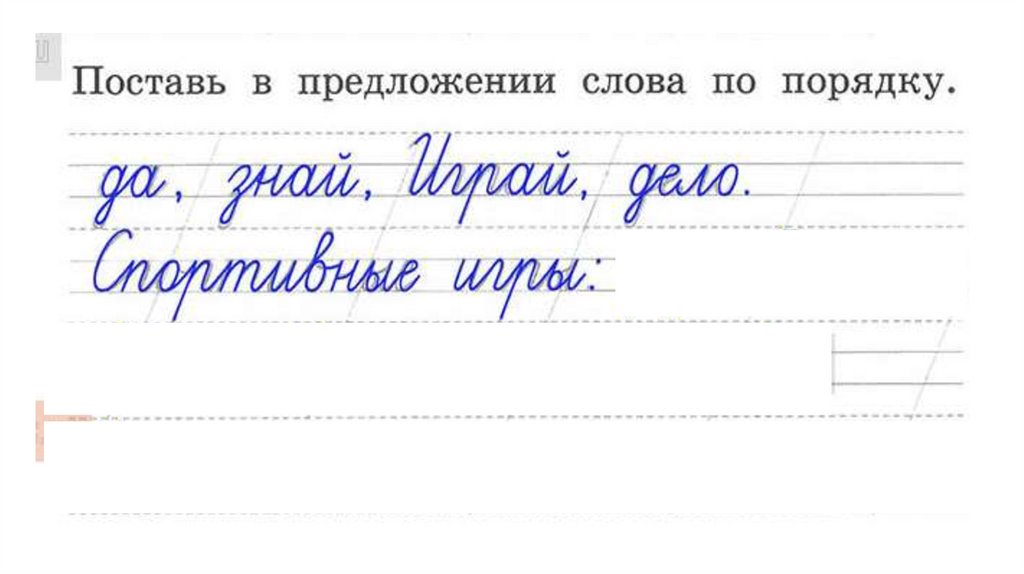 Поставь в предложении слова по порядку.
да, знай, Играй, дело.
Спортивные игры: